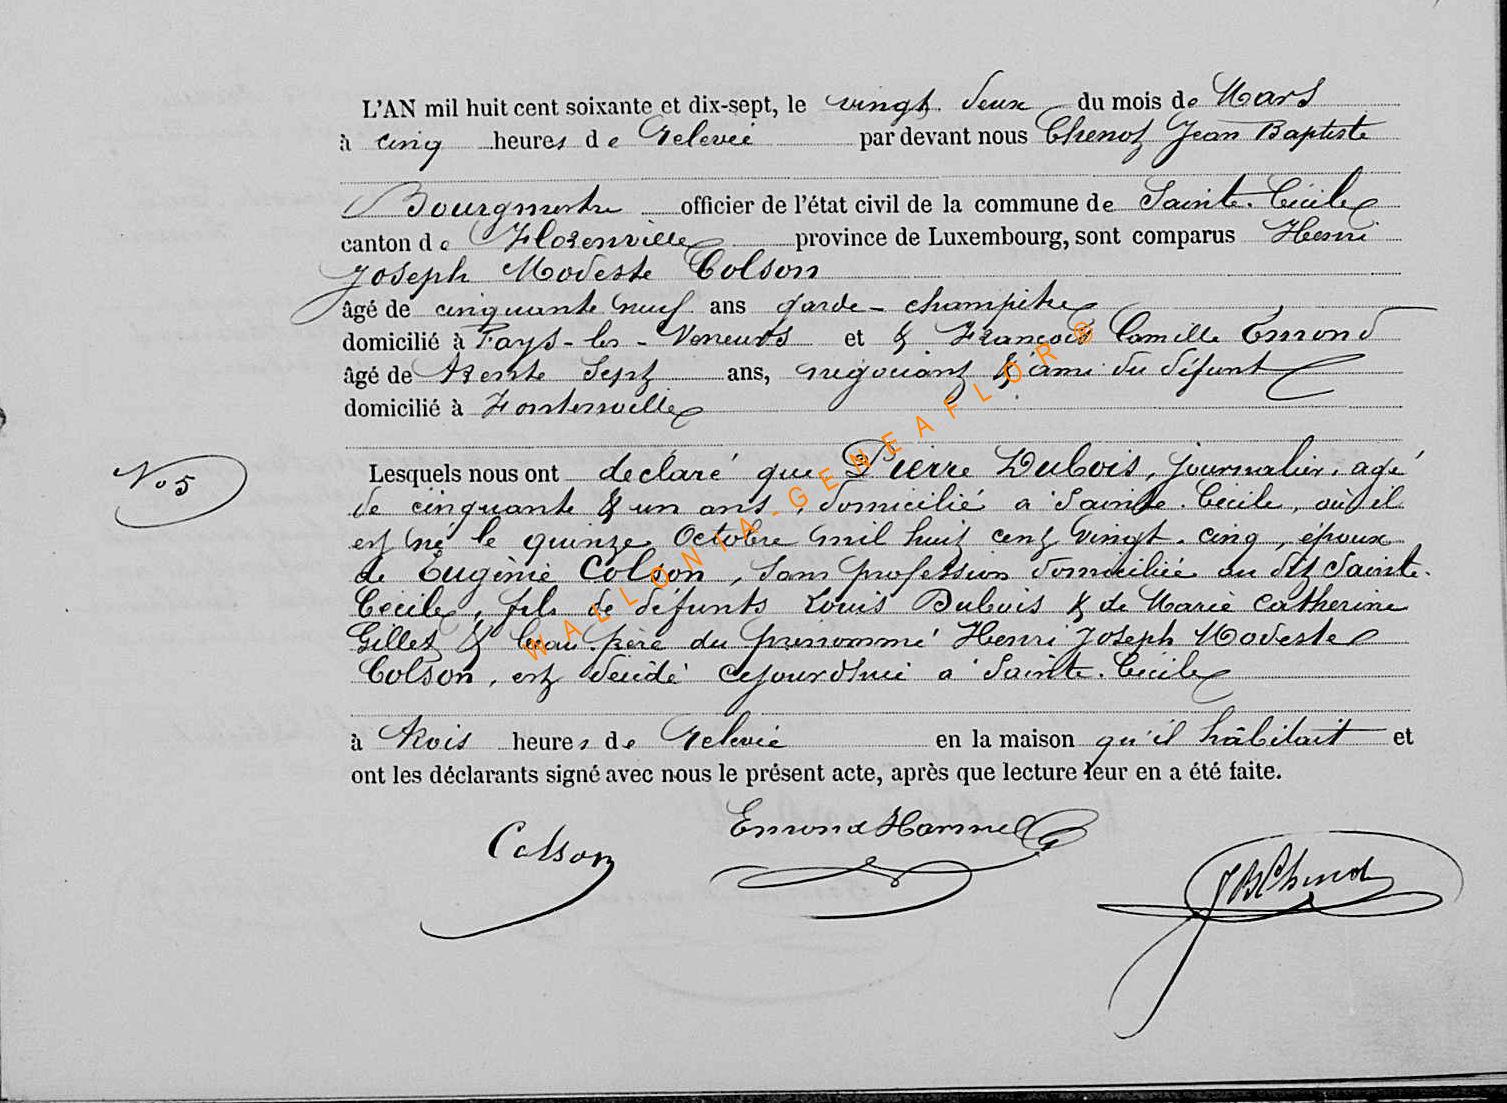 L'AN mil huit cent soixante et dix-sept, le vingt deux du mois de Mars
à cinq heures de relevée par devant nous Thenot Jean Baptiste
Bourgmestre officier de l'état civil de la commune de Sainte-Cécile
canton de Florenville province de Luxembourg, sont comparus Henri
Joseph Modeste Colson
âgé de cinquante neuf ans garde-champêtre
domicilié à Fays-les-Veneurs et & François Camille Emond
âgé de trente sept ans, négociant & ami du défunt
domicilié à Fontenoille
N° 5
Lesquels nous ont declaré que Pierre Dubois, journalier, agé
de cinquante & un ans, domicilié a Sainte-Cécile, où il
est né le quinze Octobre mil huit cent vingt-cinq, époux
de Eugènie Colson, sans profession domiciliée au dit Sainte-
Cécile, fils de défunts Louis Dubois & de Marie Catherine
Gillet & beau-père du prénommé Henri Joseph Modeste
Colson, est décédé cejourd'hui a Sainte-Cécile
à trois heures de relevée en la maison qu'il hâbitait et
ont les déclarants signé avec nous le présent acte, après que lecture leur en a été faite.
Colson
Emond Hammel
JB Thenot
WALLONIA-GENEAFLOR®